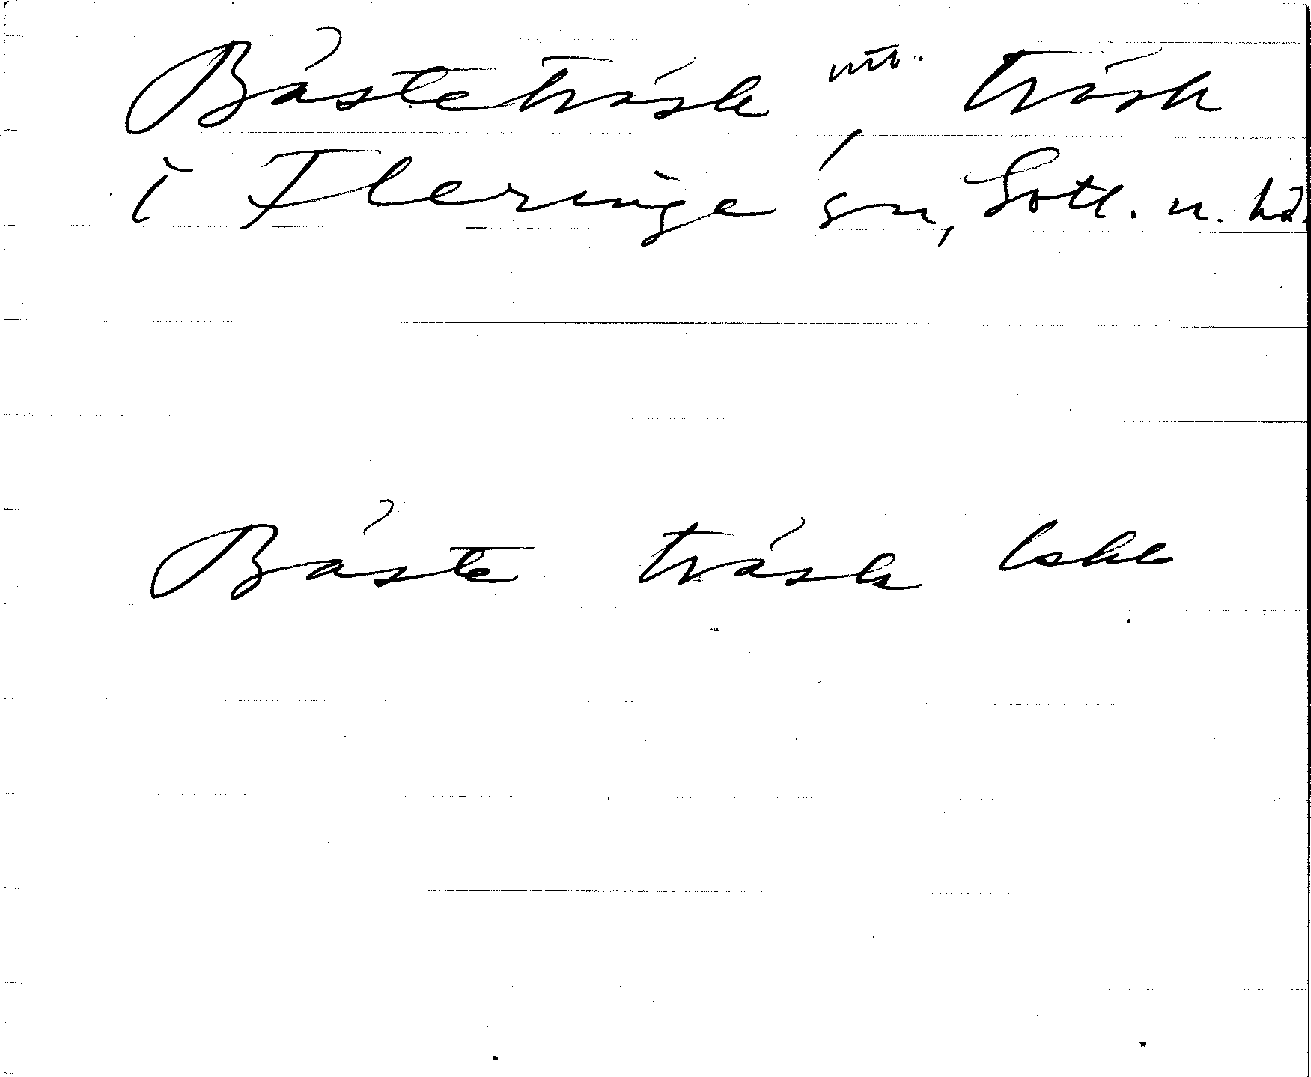 Bästeträsk ntb. , träsk
i Fleringe sn, Gotl. n. hd.
Bäste träsk Iskr